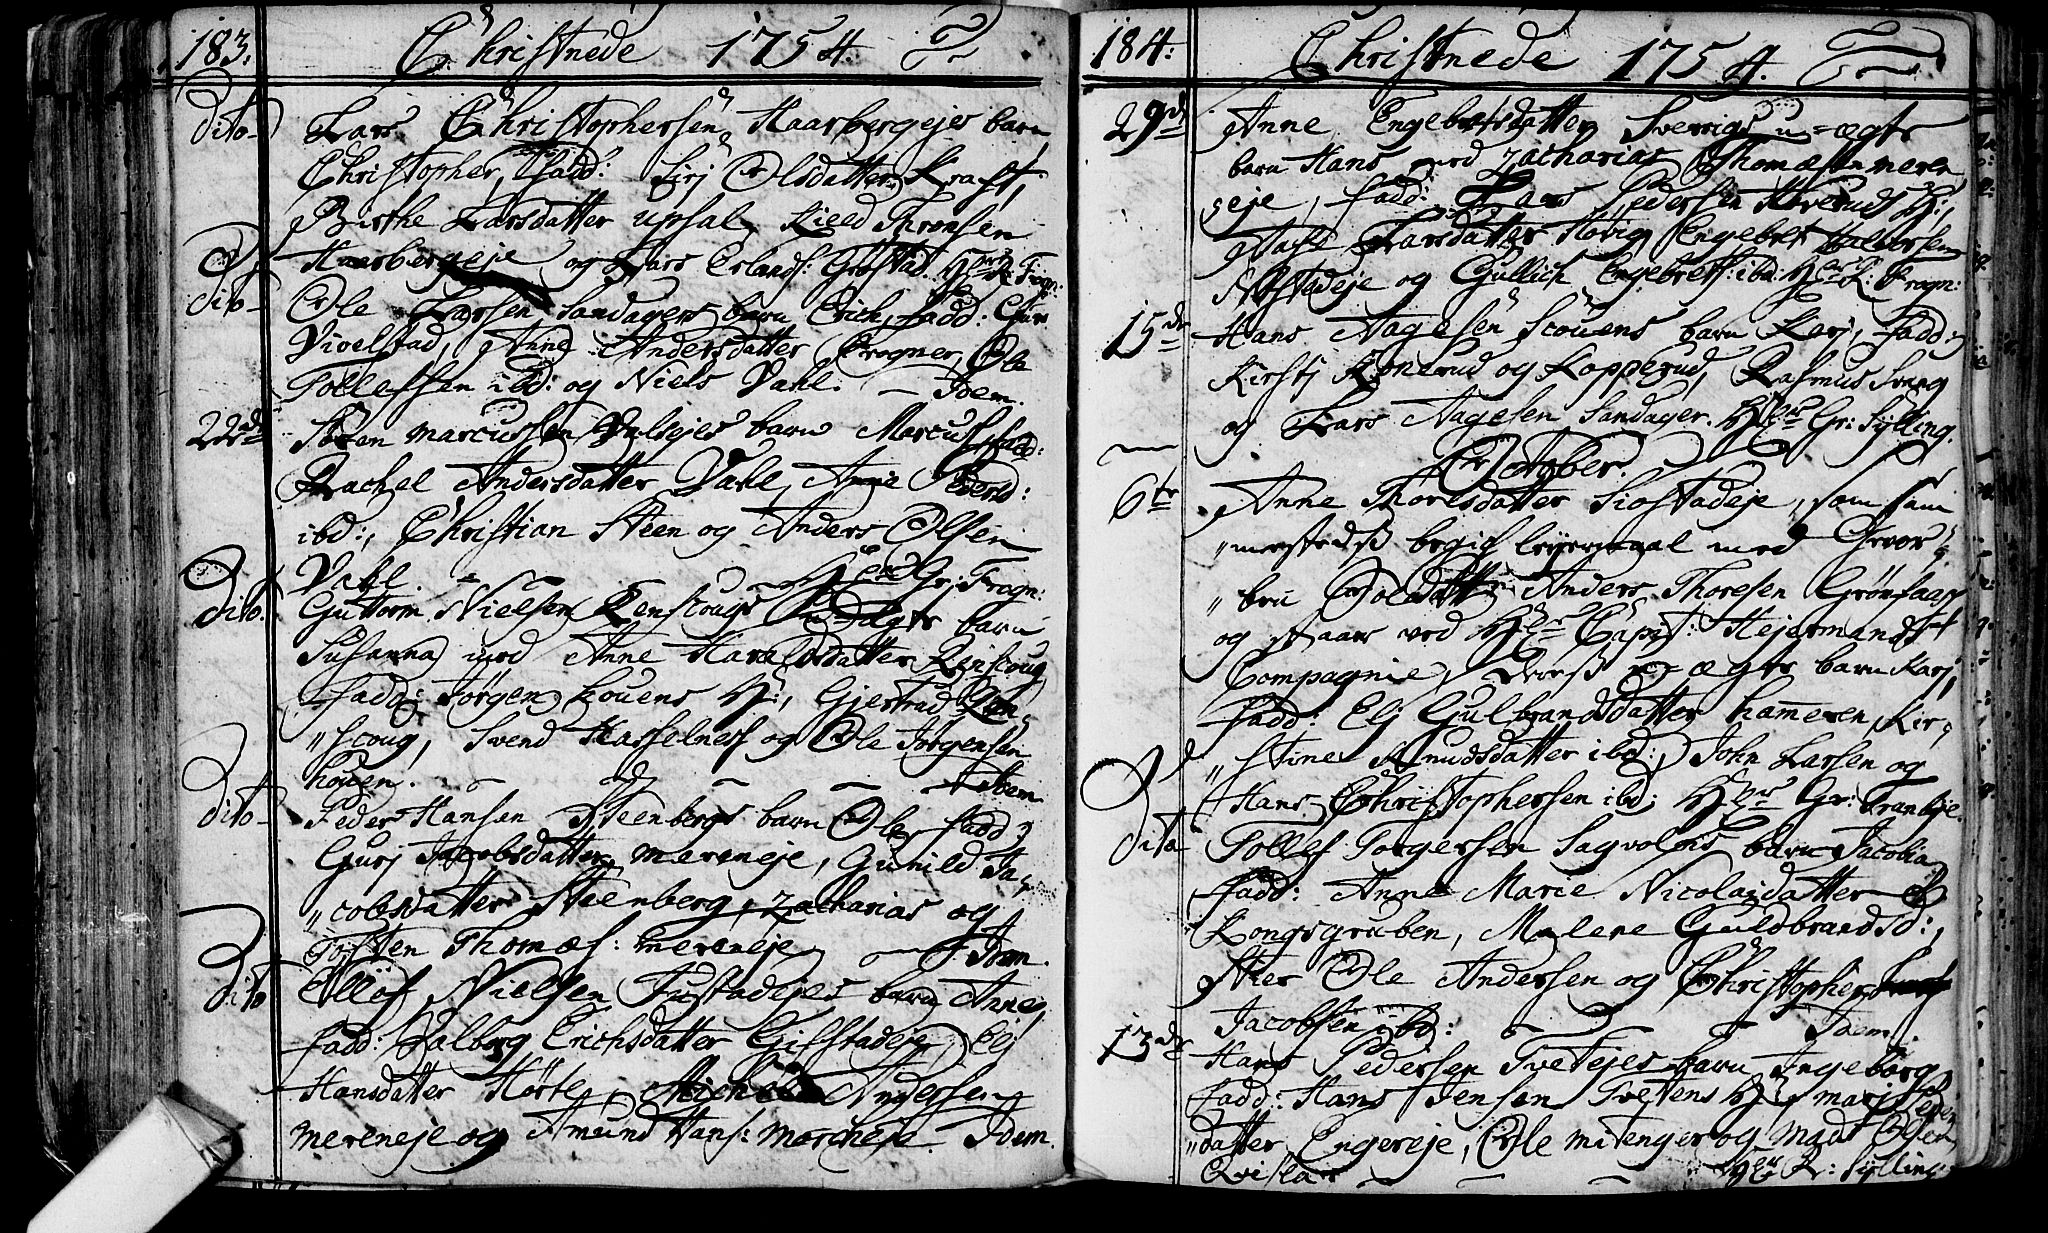 183. Christnede 1754.
dito Lars Christophersen Haarbergejes barn
Christopher, fadd: Sirj Olsdatter Kraft,
Birthe Larsdatter upsal, Kield Thronsen
Haarbergeje og Lars Erlands: Grøstad. Hr R: Fragn:
dito Ole Larsen Sandagers barn Erich, fadd:
Vivelstad, Anne Andersdatter Frogner, Ole
Tollefsen ibd: og Niels Vahl. – Idem.
22de Steen Marcussen barn Marcus, fadd:
Rachel Andersdatter Vahl, Anne Peders d:
ibd:, Christian Steen og Anders Olsen
Vahl. Hr Gr: Fragn:
dito. Guttorm Nielsen Renscougs u-ægte barn
Susanna med Anne datter Renscoug
fadd: Jørgen houens H:, Gjertrud Ren-
"scoug, Svend Hasselness og Ole Jørgensen
houen. – – – Idem
dito Peder Hansen Steenbergs barn Ole, fadd:
Gurj Jacobsdatter mereneje, Gunild Ja-
"cobsdatter Steenberg, Zacharias og
Tosten Thomæs: mereneje – Idem.
dito Ellof Nielsen Justadejes barn Anne,
fadd: Valborg Erichsdatter Gifstadeje, Elj
Hansdatter Hörte, Andersen
mereneje og Amund Hans: mereneje. Idem.
184: Christnede 1754.
29de Anne Engebretsdatter Sverrigs u-ægte
barn Hans med Zacharias Thomæsen meren
eje, fadd: Lars Pedersen H:,
Larsdatter Høvig, Engebret Halvorsen
og Gullich Engebrets: ibd: Hr R: Fragn:
15de Hans Aagesen Scouens barn Karj, fadd:
Kirstj Konerud og Kopperud, Rasmus Svang
og Lars Aagesen Sandager. Hr Gr: Sylling.
October.
6te Anne Thoresdatter Siostadeje, som sam
"mestedss begik leyermaal med
"bru Soldatt Anders Thoresen
og staar ved Hr Capit: Hejermans
Compagnie, Deres u-ægte barn Karj,
fadd: Elj Gulbrandsdatter hammeren, Kir-
"stine Knudsdatter ibd:, John Larsen og
Hans Christophersen ibd: Hr Gr: Tranbye.
dito Tollef Torgersen Sagvolds barn Jacobia
fadd: Anne Marie Nicolaidatter
Kongsgruben, Malene Guldbrandsd:,
Ole Andersen og Christopher
Jacobsen ibd: – – Idem.
13de Hans Pedersen Tvetejes barn Ingeborg
fadd: Hans Jensen Tvetens H:, marj Peders
"datter Engereje, Ole mitenger og Mads Olsen
Hr R: Sylling